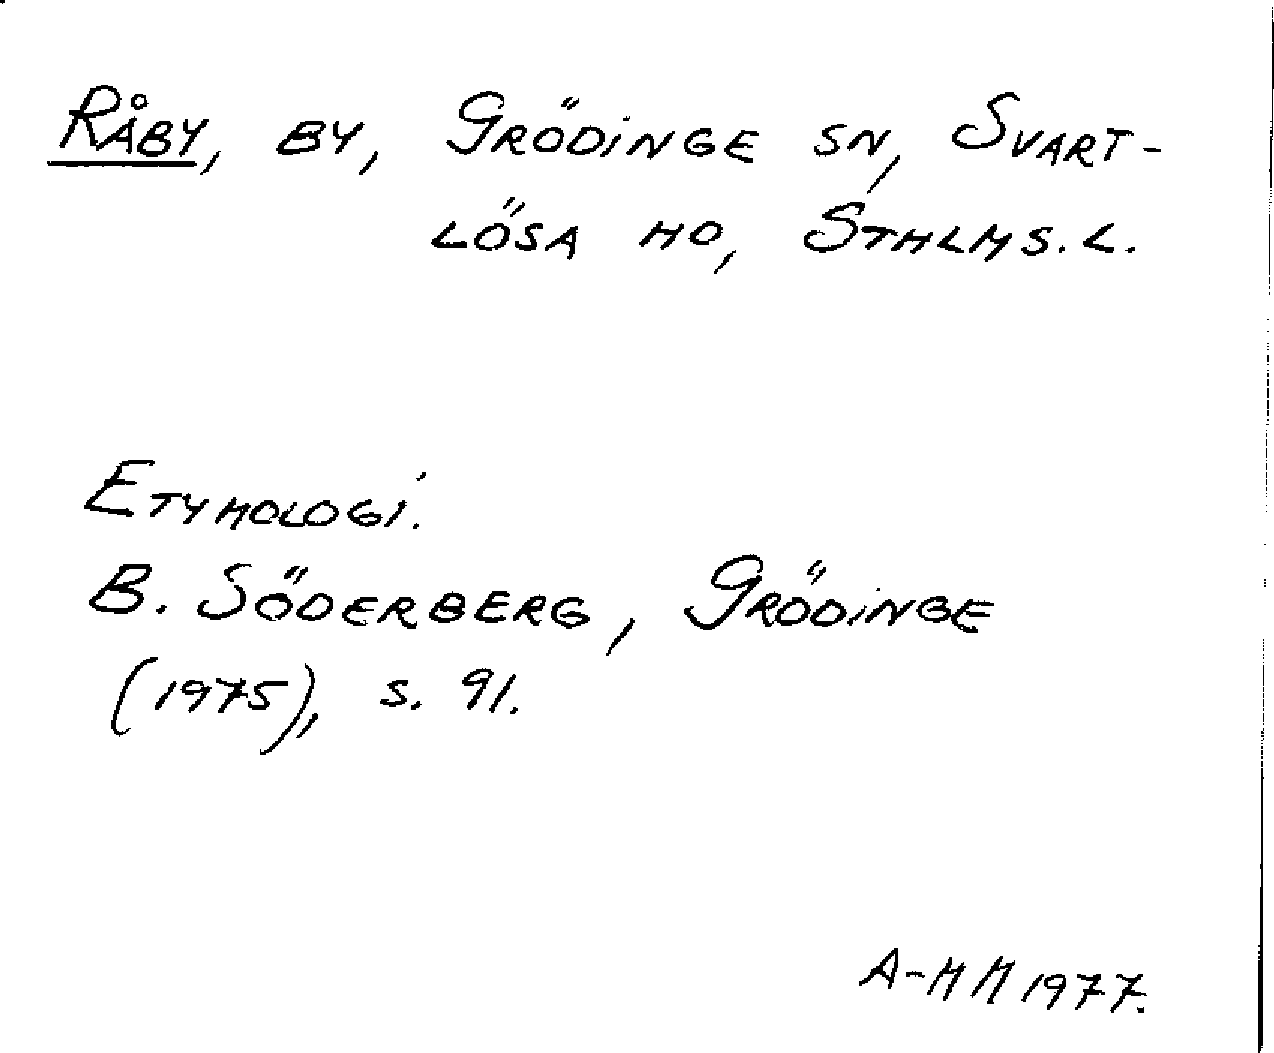 RÅBY, BY, GRÖDINGE SN, SVART-
LÖSA HD, STHLMS. L.
ETYMOLOGI.
B. SÖDERBERG, GRÖDINGE
(1975), S. 91.
A-MM 1977.